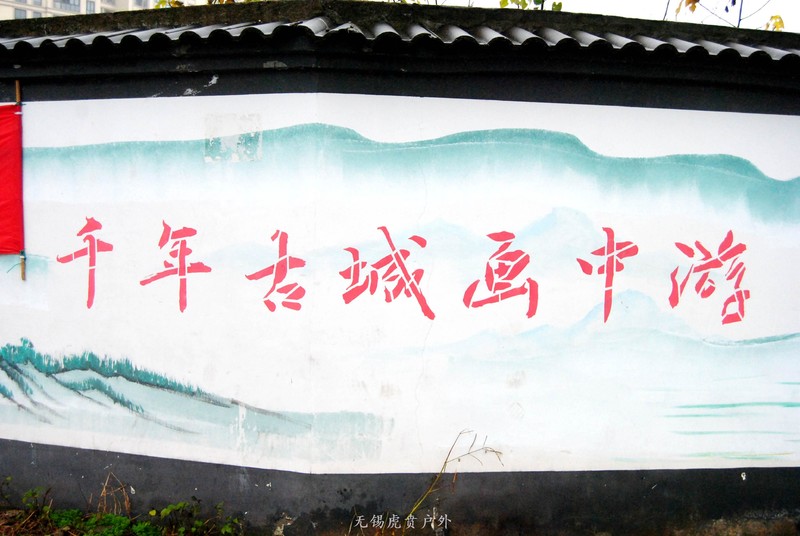 千年古城画中游
无锡虎贲户外